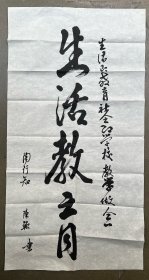 生活教育
生活即教育 社会即学校 教学做合一
陶行知
书